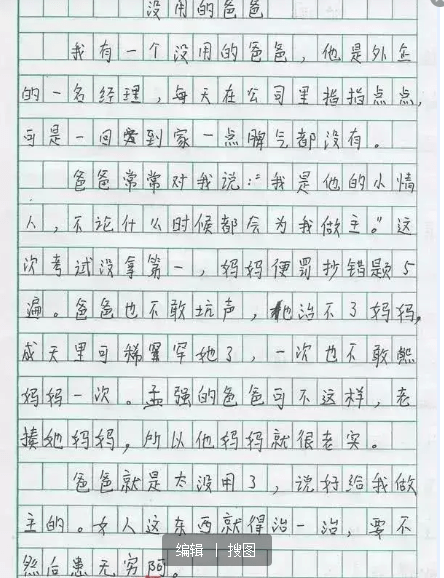 没用的爸爸
我有一个没用的爸爸，他是外企
的一名经理，每天在公司里指指点点，
可是一回爱到家一点脾气都没有。
爸爸常常对我说：“我是他的小情
人，不论什么时候都会为我做主。”这
次考试没拿第一，妈妈便罚抄错题5
遍。爸爸也不敢坑声，他治不了妈妈，
成天里可稀罕她了，一次也不敢熊
妈妈一次。孟强的爸爸可不这样，老
揍她妈妈，所以他妈妈就很老实。
爸爸就是太没用了，说好给我做
主的。女人这东西就得治一治，要不
然后患无穷阿。
编辑 | 搜图